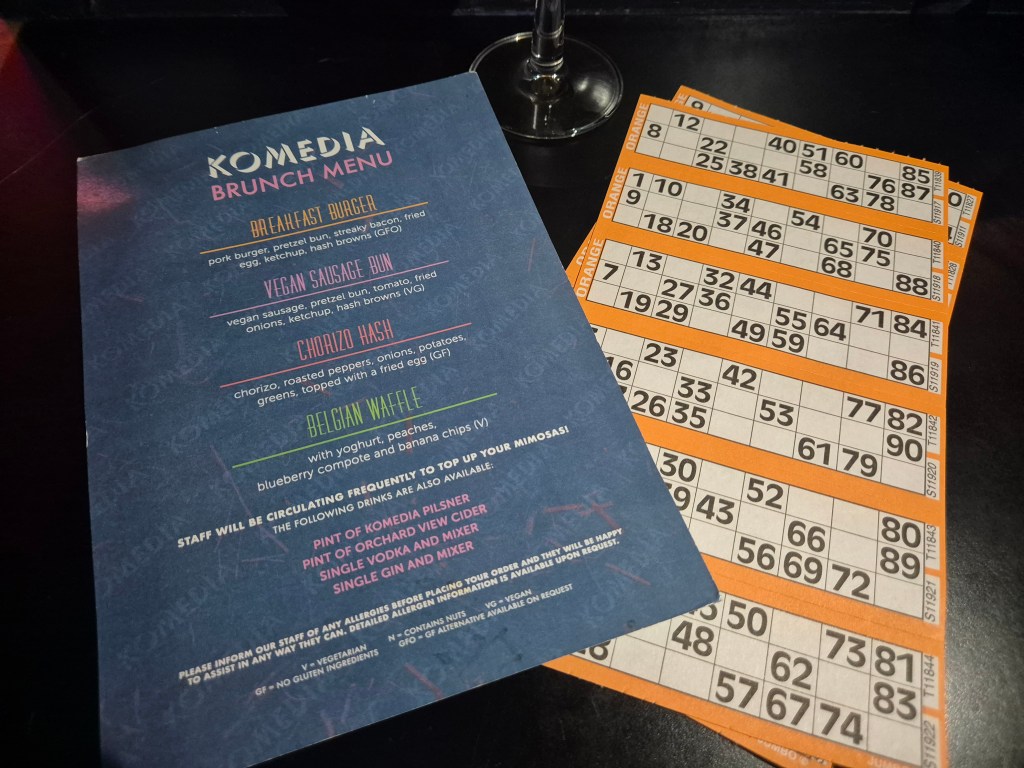 KOMEDIA
BRUNCH MENU
BREAKFAST BURGER
pork burger, pretzel bun, streaky bacon, fried
egg, ketchup, hash browns (GFO)
VEGAN SAUSAGE BUN
vegan sausage, pretzel bun, tomato, fried
onions, ketchup, hash browns (VG)
CHORIZO HASH
chorizo, roasted peppers, onions, potatoes,
greens, topped with a fried egg (GF)
BELGIAN WAFFLE
with yoghurt, peaches,
blueberry compote and banana chips (V)
STAFF WILL BE CIRCULATING FREQUENTLY TO TOP UP YOUR MIMOSAS!
THE FOLLOWING DRINKS ARE ALSO AVAILABLE:
PINT OF KOMEDIA PILSNER
PINT OF ORCHARD VIEW CIDER
SINGLE VODKA AND MIXER
SINGLE GIN AND MIXER
PLEASE INFORM OUR STAFF OF ANY ALLERGIES BEFORE PLACING YOUR ORDER AND THEY WILL BE HAPPY
TO ASSIST IN ANY WAY THEY CAN. DETAILED ALLERGEN INFORMATION IS AVAILABLE UPON REQUEST.
V = VEGETARIAN N = CONTAINS NUTS VG = VEGAN
GF = NO GLUTEN INGREDIENTS GFO = GF ALTERNATIVE AVAILABLE ON REQUEST
ORANGE
12 40 51 60 85
8 22 58 76 87
25 38 41 63 78
T11839
S11917
ORANGE
1 10 34 54 70
9 37 46 65 75
18 20 47 68 88
T11840
S11918
ORANGE
13 32 44 71 84
7 27 36 55 64
19 29 49 59 86
T11841
S11919
23 42 77 82
33 53 90
26 35 61 79
T11842
S11920
30 52 80
43 66 89
56 69 72
T11843
S11921
50 73 81
48 62 83
57 67 74
T11844
S11922